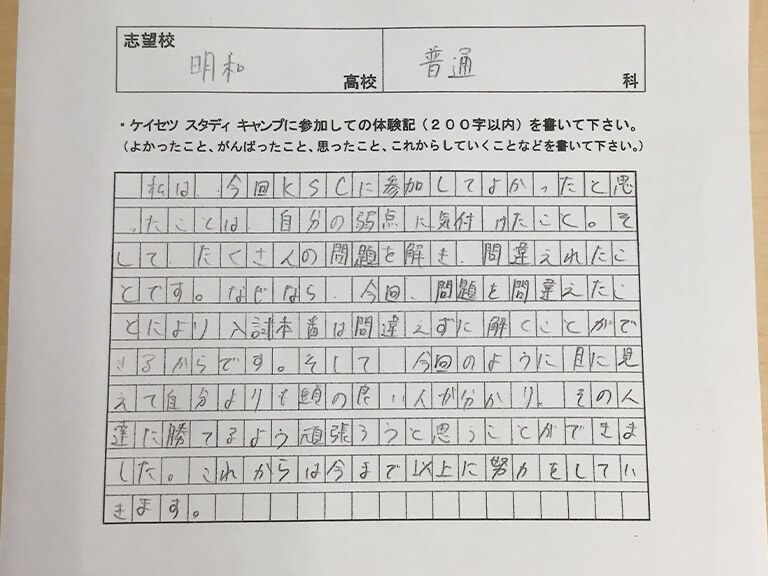 志望校
明和 高校 普通 科
・ケイセツ スタディ キャンプに参加しての体験記（200字以内）を書いて下さい。
（よかったこと、がんばったこと、思ったこと、これからしていくことなどを書いて下さい。）
私は、今回KSCに参加してよかったと思
ったことは、自分の弱点に気付けたこと。そ
して、たくさんの問題を解き、間違えれたこ
とです。なぜなら、今回、問題を間違えたこ
とにより入試本番は間違えずに解くことがで
きるからです。そして、今回のように目に見
えて自分よりも頭の良い人が分かり、その人
達に勝てるよう頑張ろうと思うことができま
した。これからは今まで以上に努力をしてい
きます。